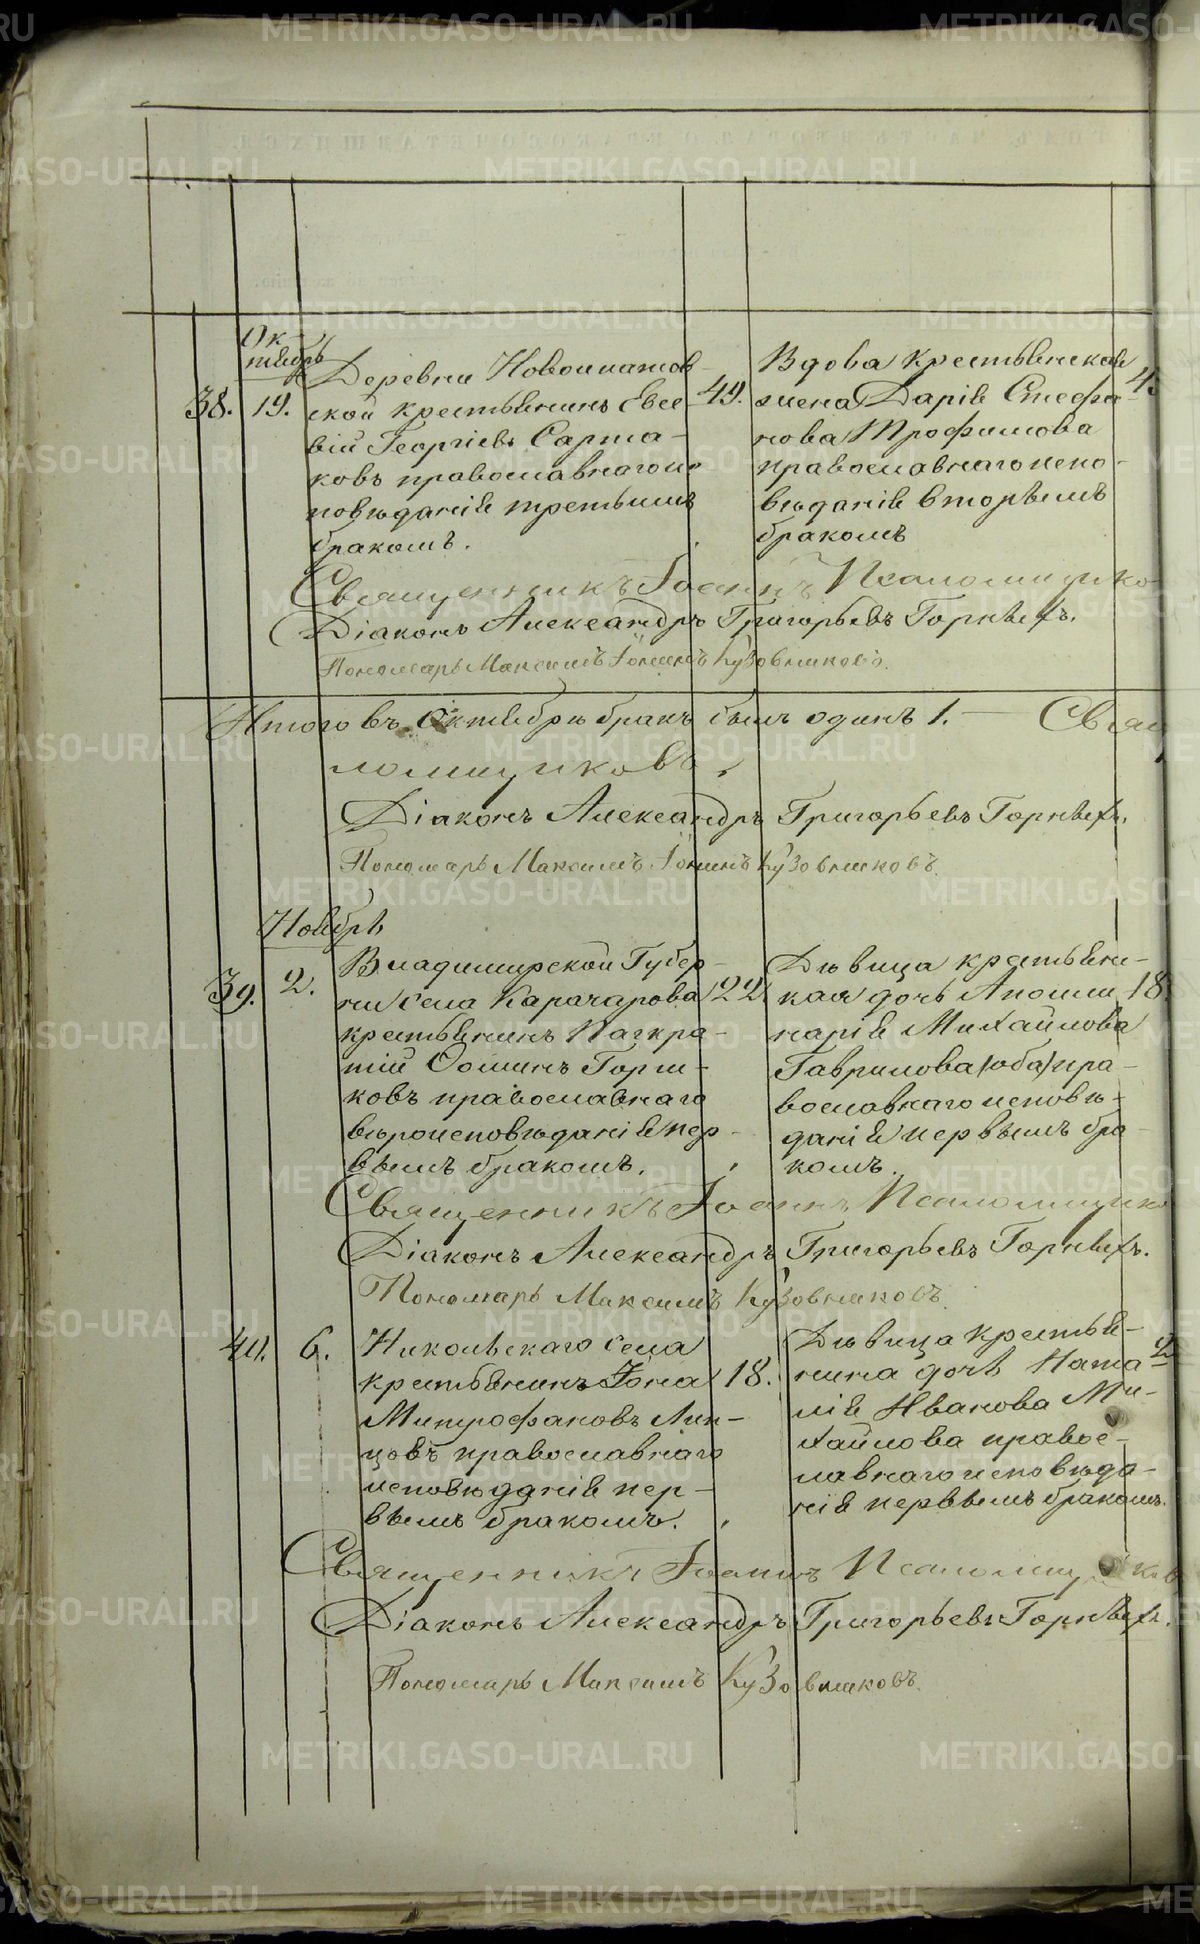 Октябрь
38. 19. Деревни Новоипатов-
ской крестьянинъ Евсе-
вій Георгіевъ Сарта-
ковъ православнаго ис
повѣданія третьимъ
бракомъ.
49.
Вдова крестьянская
жена Дарія Стефа-
нова Трофимова
православнаго испо-
вѣданія вторымъ
бракомъ
Священникъ Іоаннъ Псаломщико
Діаконъ Александръ Григорьевъ Горныхъ.
Пономарь Максимъ Іонинъ Кузовниковъ.
Итого въ Октябрѣ бракъ былъ одинъ 1. — Свящ
ломщиковъ.
Діаконъ Александръ Григорьевъ Горныхъ.
Пономарь Максимъ Іонинъ Кузовниковъ.
Ноябрь
39. 2. Владимирской Губер-
ніи села Карачарова
крестьянинъ Панкра-
тій Ѳоминъ Горш-
ковъ православнаго
вѣроисповѣданія пер-
вымъ бракомъ.
22.
Дѣвица крестьян-
кая дочь Аполли
нарія Михайлова
Гаврилова (оба) пра-
вославнаго исповѣ-
данія первымъ бра-
комъ.
18.
Священникъ Іоаннъ Псаломщико
Діаконъ Александръ Григорьевъ Горныхъ.
Пономарь Максимъ Кузовниковъ.
40. 6. Никольскаго села
крестьянинъ Іона
Митрофановъ Лип-
цовъ православнаго
исповѣданія пер-
вымъ бракомъ.
18.
Дѣвица крестья-
нина дочь Ната-
лія Иванова Ми-
хайлова правос-
лавнаго исповѣда-
нія первымъ бракомъ.
Священникъ Іоаннъ Псаломщиков
Діаконъ Александръ Григорьевъ Горныхъ.
Пономарь Максимъ Кузовниковъ.
METRIKI.GASO-URAL.RU